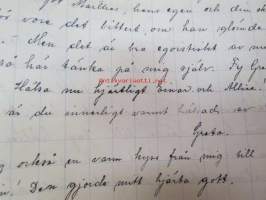 got Mallies, hans egen och din sk
vore det bittert om han glömde
- Men det är bra egoistiskt av m
så här tänka på mig själv. Ty Gre
Hälsa nu hjärtligt Einar och Allice!
är du innerligt varmt hälsad av
Greta.
också en varm kyss från mig till
! Den gjorde mitt hjärta gott.